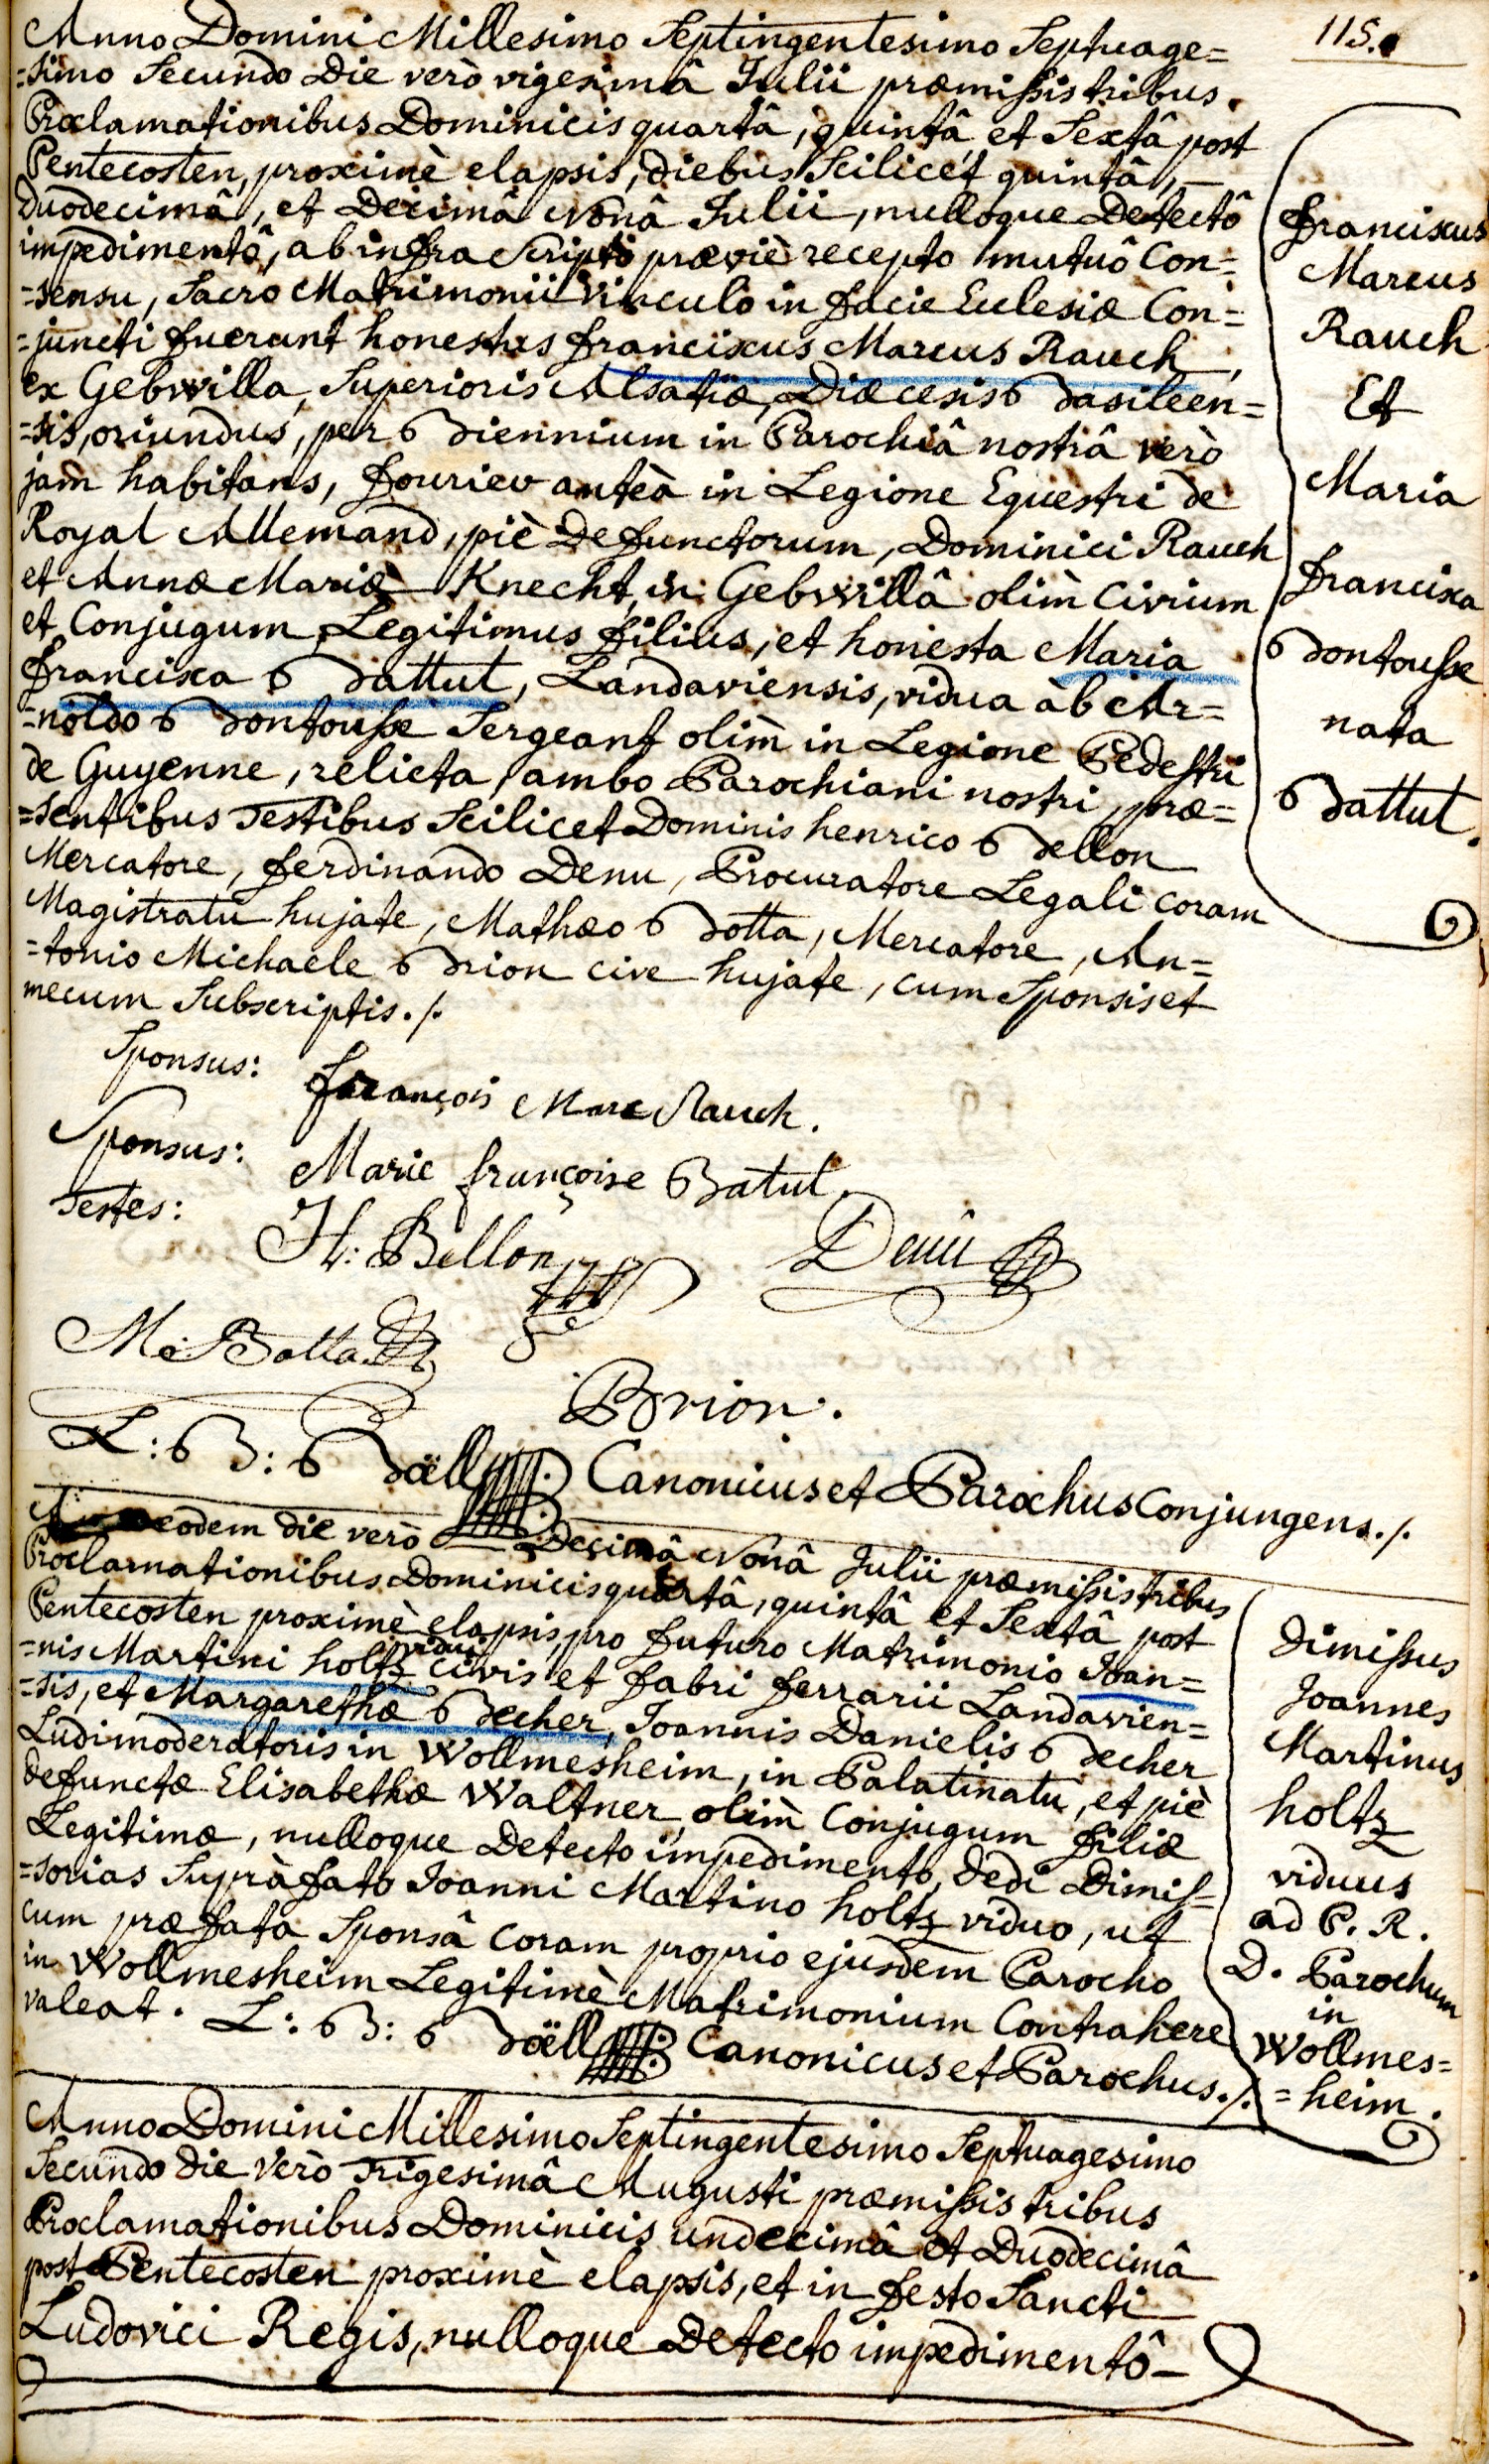 115.
Anno Domini Millesimo Septingentesimo Septuage=
=simo Secundo die verò vigesimâ Julii præmissis tribus
Proclamationibus Dominicis quartâ, quintâ et Sextâ post
Pentecosten, proximè elapsis, diebus Scilicet quintâ,
duodecimâ, et decimâ nonâ Julii, nulloque detectô
impedimentô, ab infra Scripto præviè recepto mutuô Con=
=sensu, Sacro Matrimonii Vinculo in facie Ecclesiæ Con=
=juncti fuerunt honestus franciscus Marcus Rauch,
ex Gebwilla, Superioris Alsatiæ, Diæcesis Basileen=
=sis, oriundus, per Biennium in Parochiâ nostrâ verò
jam habitans, fourier anteà in Legione Equestri de
Royal Allemand, piè defunctorum, Dominici Rauch
et Annæ Mariæ Knecht, in Gebwillâ olim Civium
et Conjugum, Legitimus filius, et honesta Maria
francisca Battut, Landaviensis, vidua ab Ar=
=noldo Bontousse Sergeant olim in Legione Pedestri
de Guyenne, relicta, ambo Parochiani nostri, præ=
=sentibus Testibus Scilicet Dominis henrico Bellon
Mercatore, ferdinando Denu, Procuratore Legali coram
Magistratu hujate, Mathæo Botta, Mercatore, An=
=tonio Michaele Brion cive hujate, cum Sponsis et
mecum Subscriptis ./.
franciscus
Marcus
Rauch
Et
Maria
francisca
Bontousse
nata
Battut.
Sponsus: françois Marc Rauch.
Sponsus: Marie françoise Batut
Testes: H: Bellon Denû
M: Botta
Brion.
L: B: Böell Canonicus et Parochus Conjungens ./.
eodem die verò decimâ nonâ Julii præmissis tribus
Proclamationibus Dominicis quartâ, quintâ et Sextâ post
Pentecosten proximè elapsis, pro futuro Matrimonio Joan=
=nis Martini holtz vidui civis et fabri ferrarii Landavien=
=sis, et Margarethæ Becher, Joannis Danielis Becher
Ludimoderatoris in Wollmesheim, in Palatinatu, et piè
defunctæ Elisabethæ Waltner, olim Conjugum filiæ
Legitimæ, nulloque detecto impedimento, dedi dimis=
=sorias Suprà fato Joanni Martino holtz viduo, ut
cum præfata Sponsâ coram proprio ejusdem Parocho
in Wollmesheim Legitimè Matrimonium Contrahere
valeat. L: B: Böell Canonicus et Parochus ./.
dimissus
Joannes
Martinus
holtz
viduus
ad P. R.
D. Parochum
in
Wollmes=
=heim.
Anno Domini Millesimo Septingentesimo Septuagesimo
Secundo die Verò Trigesimâ Augusti præmissis tribus
Proclamationibus Dominicis undecimâ et Duodecimâ
post Pentecosten proximè elapsis, et in festo Sancti
Ludovici Regis, nulloque detecto impedimentô